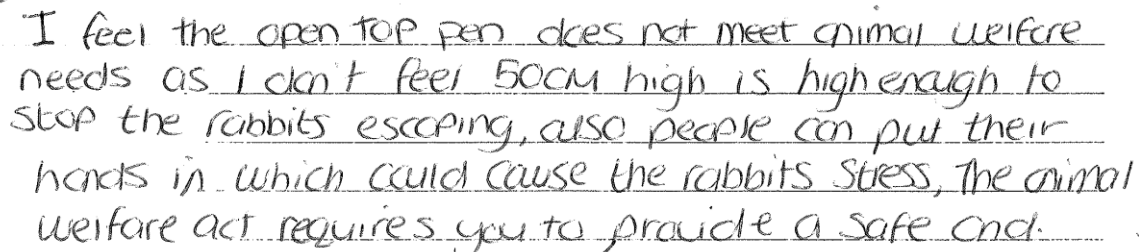 I feel the open top pen does not meet animal welfare
needs as I don't feel 50cm high is high enough to
stop the rabbits escaping, also people can put their
hands in which could cause the rabbits stress, The animal
welfare act requires you to provide a safe and.